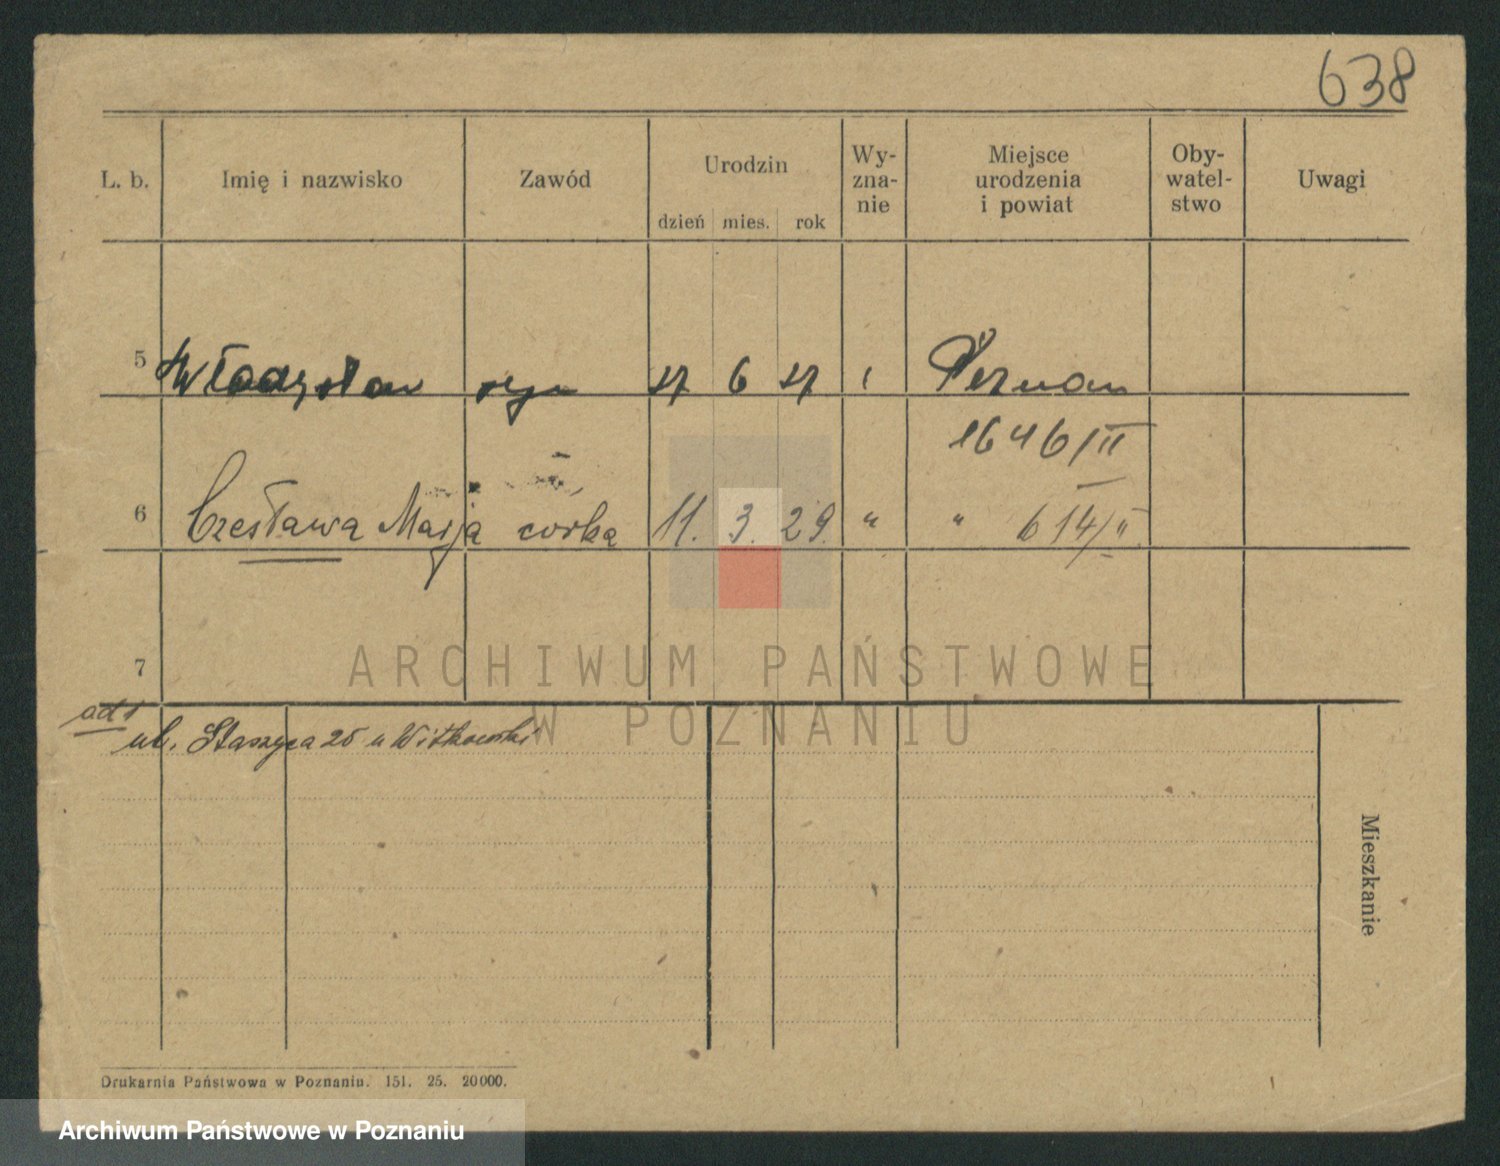 638
L. b. Imię i nazwisko Zawód Urodzin dzień mies. rok Wy-zna-nie Miejsce urodzenia i powiat Oby-watel-stwo Uwagi
5 Władysław syn 17 6 17 Poznań
1646/II
6 Czesława Marja córka 11. 3. 29. " " 614/II
7
ARCHIWUM PAŃSTWOWE
W POZNANIU
ad 1
ul. Staszyca 25 u Witkowski
Mieszkanie
Drukarnia Państwowa w Poznaniu. 151. 25. 20000.
Archiwum Państwowe w Poznaniu